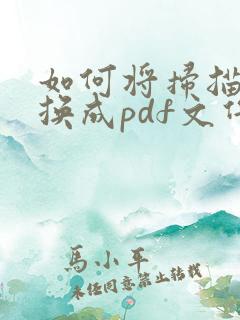 如何将扫描
换成pdf文件
馬小平
未经同意禁止转载